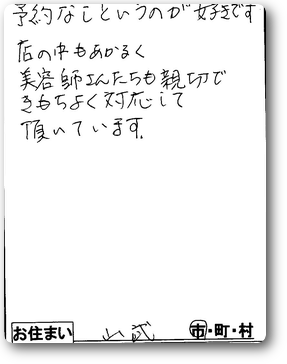 予約なしというのが好きです
店の中もあかるく
美容師さんたちも親切で
きもちよく対応して
頂いています。
お住まい 山武 市・町・村